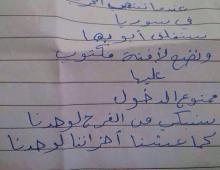 عندما تنتهي الحرب
في سوريا
سنغلق أبوابها
ونضع لافتة مكتوب
عليها
ممنوع الدخول
سنبكي من الفرح لوحدنا
كما عشنا أحزاننا لوحدنا